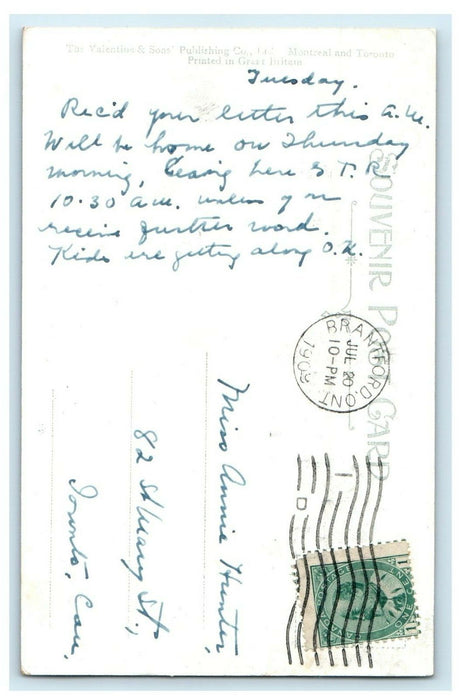 The Valentine & Sons' Publishing Co., Ltd. Montreal and Toronto
Printed in Great Britain
Tuesday.
Rec'd your letter this a.m.
Will be home on Thursday
morning, leaving here G.T.R.
10.30 a.m. unless you
receive further word.
Kids are getting along O.K.
SOUVENIR POST CARD
BRANTFORD, ONT
JUL 20
10-PM
1909
Miss Annie Hunter,
82 St Mary St.,
Toronto, Can,